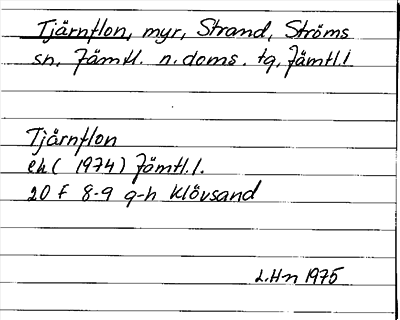 Tjärnflon, myr, Strand, Ströms
sn. Jämtl. n. doms. tg, Jämtl.l
Tjärnflon
ek ( 1974) Jämtl.l.
20 f 8-9 g-h Klövsand
L.Hn 1975